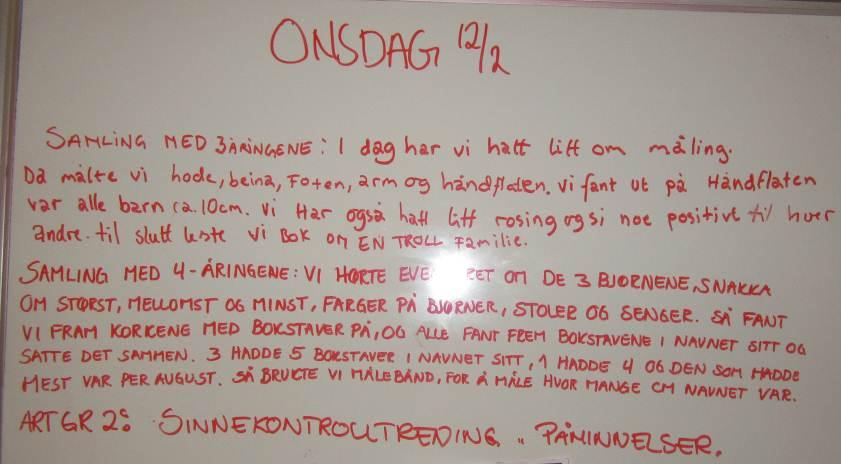 ONSDAG 12/2
SAMLING MED 3ÅRINGENE: I dag har vi hatt litt om måling.
Da målte vi hode, beina, Foten, arm og håndflaten. vi fant ut på Håndflaten
var alle barn ca. 10cm. vi Har også hatt litt rosing og si noe positivt til hver
andre. til slutt leste vi BOK om EN TROLL Familie.
SAMLING MED 4-ÅRINGENE: VI HØRTE OM DE 3 BJØRNENE, SNAKKA
OM STØRST, MELLOMST OG MINST, FARGER PÅ BJØRNER, STOLER OG SENGER. SÅ FANT
VI FRAM KORKENE MED BOKSTAVER PÅ, OG ALLE FANT FREM BOKSTAVENE I NAVNET SITT OG
SATTE DET SAMMEN. 3 HADDE 5 BOKSTAVER I NAVNET SITT, 1 HADDE 4 OG DEN SOM HADDE
MEST VAR PER AUGUST. SÅ BRUKTE VI MÅLEBÅND, FOR Å MÅLE HVOR MANGE CM NAVNET VAR.
ART GR 2: SINNEKONTROLLTRENING " PÅMINNELSER.